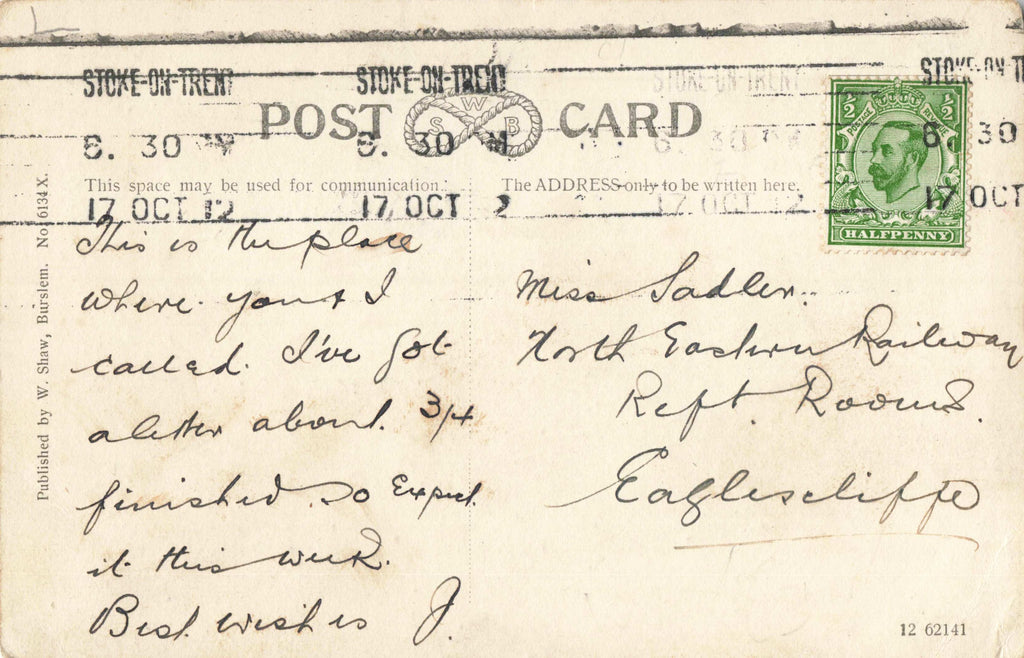 STOKE-ON-TRENT STOKE-ON-TRENT STOKE-ON-TRENT STOKE-ON-T
POST W S B CARD
6. 30 PM 6. 30 PM 6. 30 PM 6. 30
17 OCT 12 17 OCT 12 17 OCT 12 17 OCT
½ ½
POSTAGE
HALFPENNY
This space may be used for communication.
The ADDRESS only to be written here.
This is the place
where you & I
called. I've got
a letter about 3/4
finished so Expect
it this week.
Best wishes J.
Miss Sadler.
North Eastern Railway
Reft. Rooms.
Eaglescliffe
Published by W. Shaw, Burslem. No 6134 X.
12 62141